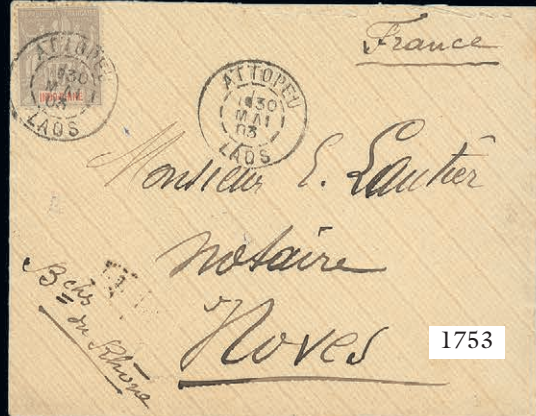 INDO-CHINE
ATTOPEU
30
MAI
03
LAOS
ATTOPEU
30
MAI
03
LAOS
France
Monsieur E. Lautier
notaire
Noves
Bches
du Rhône
1753